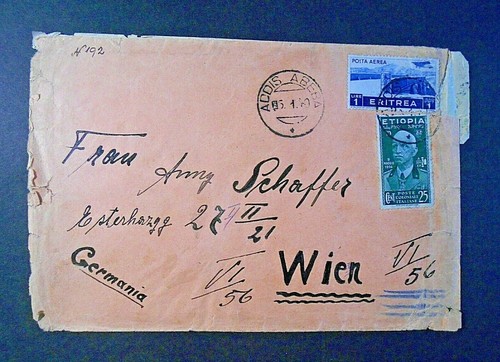 N 192
POSTA AEREA
LIRE 1 ERITREA 1
ADDIS ABEBA
ETIOPIA
POSTE
COLONIALI
ITALIANE
25
Frau
Anny Schaffer
Esterhazgg 27 II/21
Wien
VI/56
Germania
VI/56